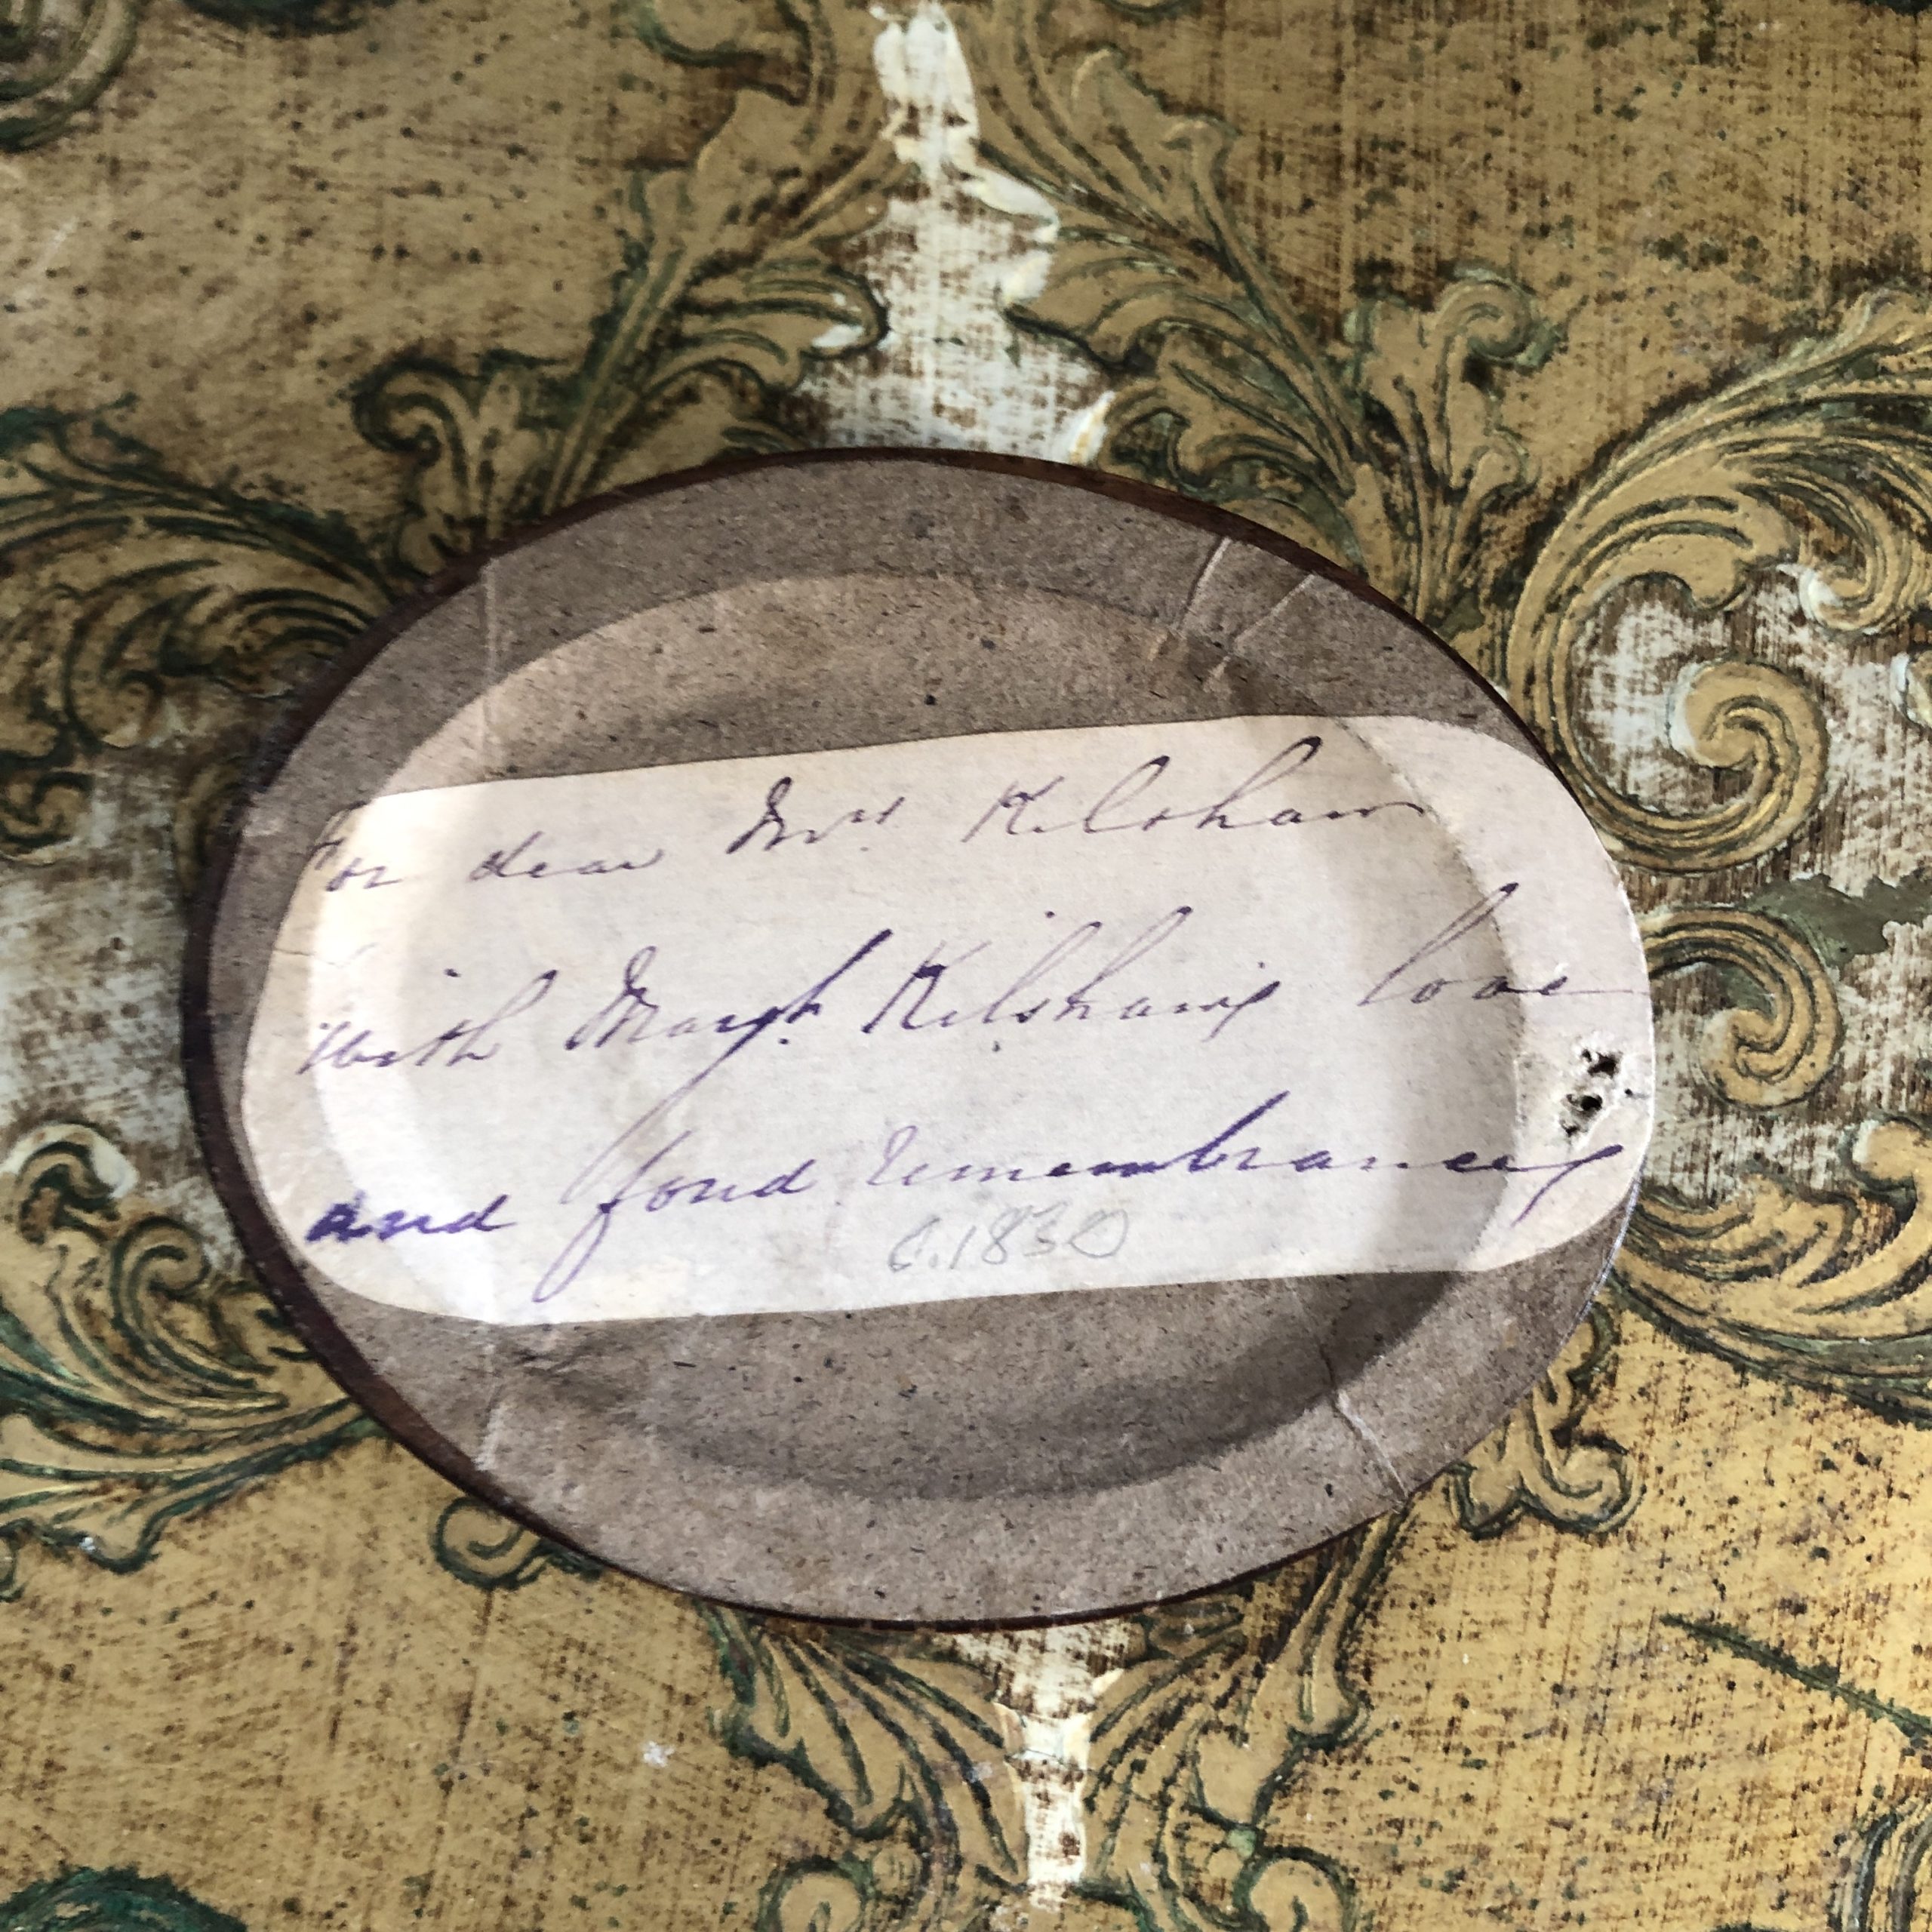 For dear Mrs. Kilshaw
With Margt. Kilshaw's love
and fond remembrances
C. 1830